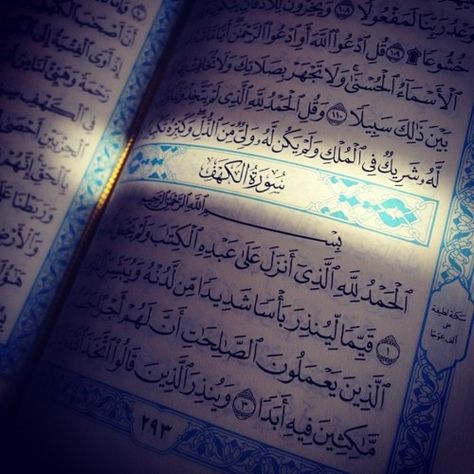 وَعْدُ رَبِّنَا لَمَفْعُولًا ١٠٨ وَيَخِرُّونَ
خُشُوعًا ١٠٩ قُلِ ٱدْعُوا۟ ٱللَّهَ أَوِ ٱدْعُوا۟ ٱلرَّحْمَٰنَ
ٱلْأَسْمَآءُ ٱلْحُسْنَىٰ وَلَا تَجْهَرْ بِصَلَاتِكَ وَلَا تُخَافِتْ
بَيْنَ ذَٰلِكَ سَبِيلًا ١١٠ وَقُلِ ٱلْحَمْدُ لِلَّهِ ٱلَّذِى لَمْ يَتَّخِذْ
لَّهُۥ شَرِيكٌ فِى ٱلْمُلْكِ وَلَمْ يَكُن لَّهُۥ وَلِىٌّ مِّنَ ٱلذُّلِّ وَكَبِّرْهُ تَكْبِيرًا
سُورَةُ الكَهْفِ
بِسْمِ ٱللَّهِ ٱلرَّحْمَٰنِ ٱلرَّحِيمِ
ٱلْحَمْدُ لِلَّهِ ٱلَّذِىٓ أَنزَلَ عَلَىٰ عَبْدِهِ ٱلْكِتَٰبَ وَلَمْ يَجْعَل
١ قَيِّمًا لِّيُنذِرَ بَأْسًا شَدِيدًا مِّن لَّدُنْهُ وَيُبَشِّرَ
ٱلَّذِينَ يَعْمَلُونَ ٱلصَّٰلِحَٰتِ أَنَّ لَهُمْ أَجْرًا
مَّٰكِثِينَ فِيهِ أَبَدًا ٣ وَيُنذِرَ ٱلَّذِينَ قَالُوا۟ ٱتَّخَذَ
سكتة لطيفة
على
ألف عوجا
٢٩٣
أَنَّ أَصْحَٰبَ
إِذْ أَوَى ٱلْفِتْيَةُ إِلَى
رَحْمَةً وَهَيِّئْ لَنَا مِنْ
فِى ٱلْكَهْفِ
ٱلْحِزْبَيْنِ أَحْصَىٰ
بِٱلْحَقِّ إِنَّهُمْ
وَرَبَطْنَا
وَٱلْأَرْضِ
هَٰٓؤُلَآءِ